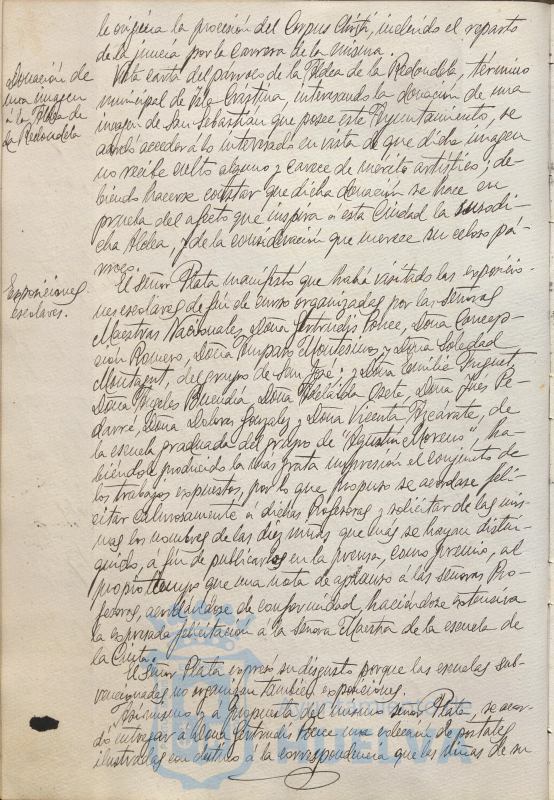 le origina la procesión del Corpus Christi, incluido el reparto
de la juncia por la carrera de la misma.
Donación de
una imagen
a la Aldea de
la Redondela
Vista carta del párroco de la Aldea de la Redondela, término
municipal de Isla Cristina, interesando la donación de una
imagen de San Sebastián que posee este Ayuntamiento, se
acordó acceder a lo interesado en vista de que dicha imagen
no recibe culto alguno y carece de mérito artístico; de-
biendo hacerse constar que dicha donación se hace en
prueba del afecto que inspira á esta Ciudad la susodi-
cha Aldea, y de la consideración que merece su celoso pá-
rroco.
Exposiciones
escolares.
El Señor Plata manifestó que había visitado las exposicio-
nes escolares de fin de curso organizadas por las Señoras
Maestras Nacionales, Doña Gertrudis Ponce, Doña Concep-
ción Romero, Doña Amparo Montesinos y Doña Soledad
del grupo de San José; y Doña Emilia
Doña Angeles Buendía, Doña Adelaida Doña Inés Pe-
Doña Dolores Gonzalez y Doña Vicenta de
la escuela graduada del grupo de "Agustín Moreno", ha-
biéndole producido la más grata impresión el conjunto de
los trabajos expuestos, por lo que propuso se acordase feli-
citar calurosamente a dichas Profesoras y solicitar de las mis-
mas los nombres de las diez niñas que más se hayan distin-
guido, á fin de publicarlos en la prensa, como premio, al
propio tiempo que una nota de aplauso á las señoras Pro-
fesoras, acordándose de conformidad, haciéndose extensiva
la expresada felicitación a la Señora Maestra de la escuela de
la Cinta.
El Señor Plata expresó su disgusto porque las escuelas sub-
vencionadas no organizan también exposiciones.
Asimismo y a propuesta del mismo señor Plata, se acor-
dó entregar á Doña Gertrudis Ponce una colección de postales
ilustradas con destino á la correspondencia que las niñas de su